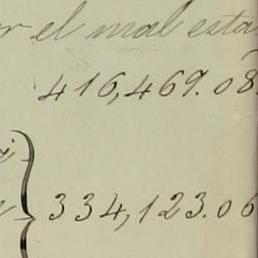 el mal esta
416,469.08
334,123.06